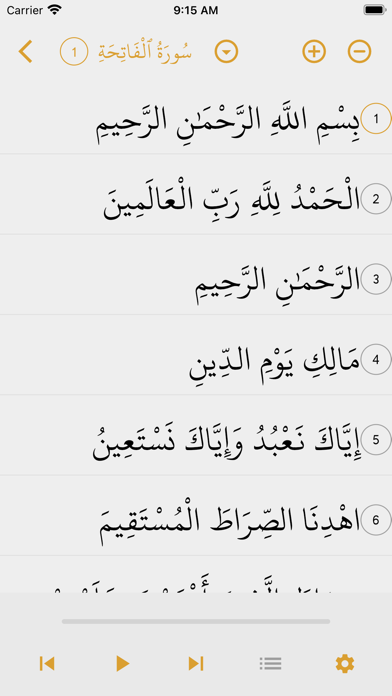 Carrier 9:15 AM
سُورَةُ ٱلْفَاتِحَةِ 1
بِسْمِ اللَّهِ الرَّحْمَٰنِ الرَّحِيمِ 1
الْحَمْدُ لِلَّهِ رَبِّ الْعَالَمِينَ 2
الرَّحْمَٰنِ الرَّحِيمِ 3
مَالِكِ يَوْمِ الدِّينِ 4
إِيَّاكَ نَعْبُدُ وَإِيَّاكَ نَسْتَعِينُ 5
اهْدِنَا الصِّرَاطَ الْمُسْتَقِيمَ 6